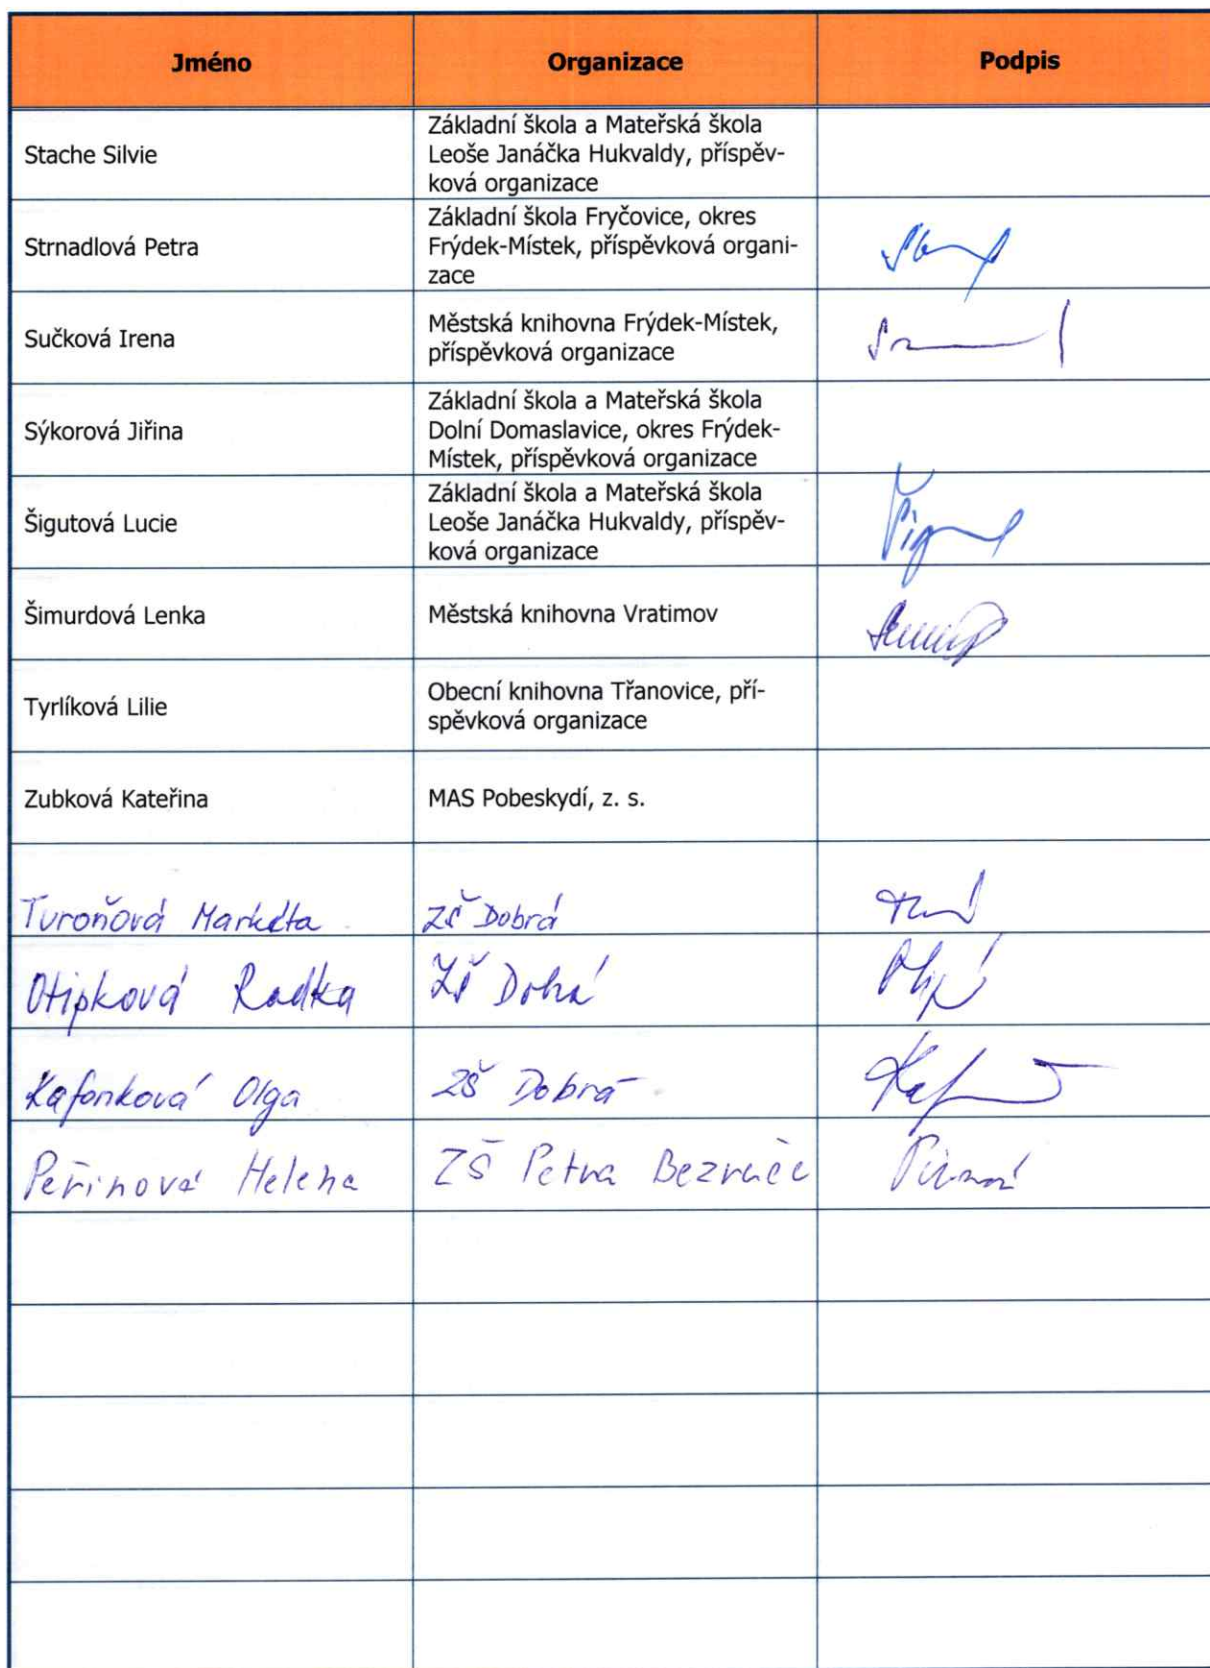 Jméno Organizace Podpis
Základní škola a Mateřská škola
Stache Silvie Leoše Janáčka Hukvaldy, příspěv-
ková organizace
Základní škola Fryčovice, okres
Strnadlová Petra Frýdek-Místek, příspěvková organi-
zace
Sučková Irena Městská knihovna Frýdek-Místek,
příspěvková organizace
Základní škola a Mateřská škola
Sýkorová Jiřina Dolní Domaslavice, okres Frýdek-
Místek, příspěvková organizace
Základní škola a Mateřská škola
Šigutová Lucie Leoše Janáčka Hukvaldy, příspěv-
ková organizace
Šimurdová Lenka Městská knihovna Vratimov
Tyrlíková Lilie Obecní knihovna Třanovice, pří-
spěvková organizace
Zubková Kateřina MAS Pobeskydí, z. s.
Turoňová Markéta ZŠ Dobrá
Otipková Radka ZŠ Dobrá
Kafonková Olga ZŠ Dobrá
Peřinová Helena ZŠ Petra Bezruče